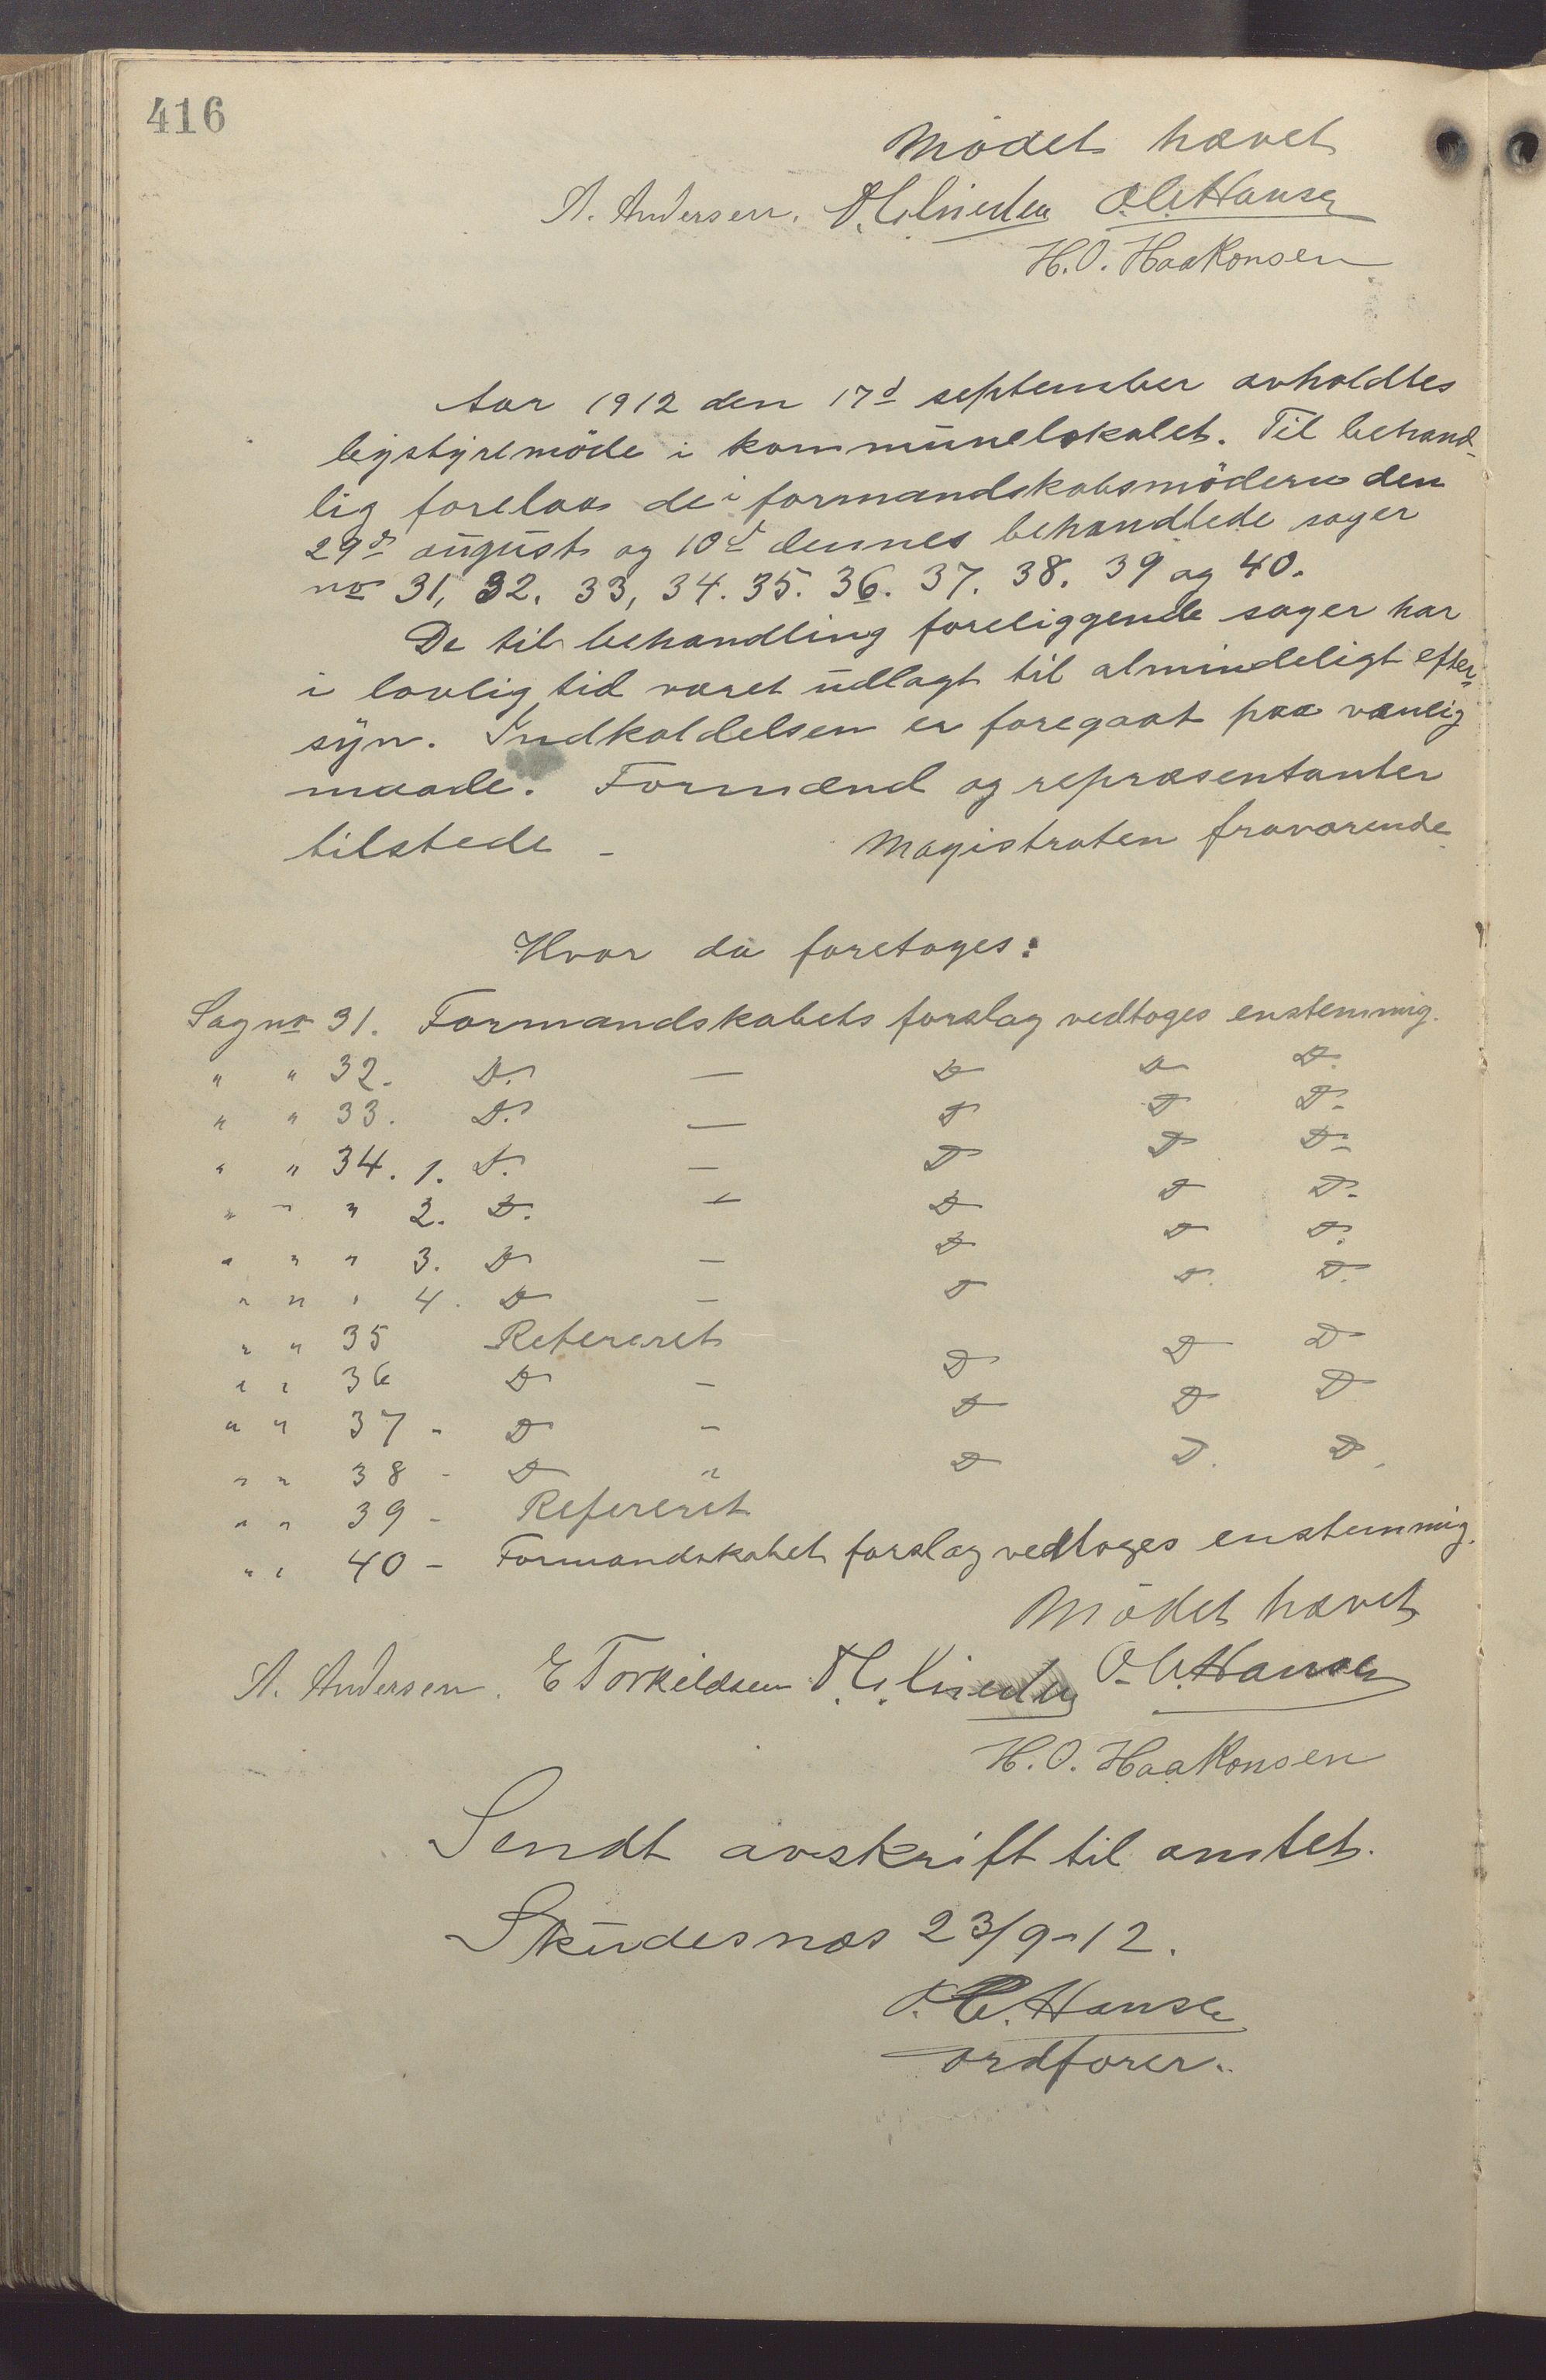 416
Mødet hævet
A. Andersen. O. C. Hansen
H. O. Haakonsen
Aar 1912 den 17d september avholdtes
bystyremöde i kommunelokalet. Til behand-
lig forelaa de i formandskabsmödern den
29ds august og 10d dennes behandlede sager
no 31, 32. 33, 34. 35. 36. 37. 38. 39 og 40.
De til behandling foreliggende sager har
i lovlig tid været udlagt til almindeligt efter-
syn. Indkaldelsen er foregaat paa vanlig
maade. Formænd og repræsentanter
tilstede - Magistraten fraværende
Hvor da foretoges:
Sag no 31. Formandskabets forslag vedtoges enstemmig.
" " 32. D. — D D D.
" " 33. D. — D D D.
" " 34. 1. D. — D D D.
" " " 2. D. — D D D.
" " " 3. D — D D D.
" " " 4. D — D D. D.
" " 35 Refereret
" " 36 D - D D D
" " 37 - D - D D D
" " 38 - D " D D. D.
" " 39 - Refereret
" " 40 - Formandskabet forslag vedtoges enstemmig.
Mödet hævet
A. Andersen. E Torkildsen O. C. Hansen
H. O. Haakonsen
Sendt avskrift til amtet.
Skudesnæs 23/9-12.
O. C. Hansen
ordfører.